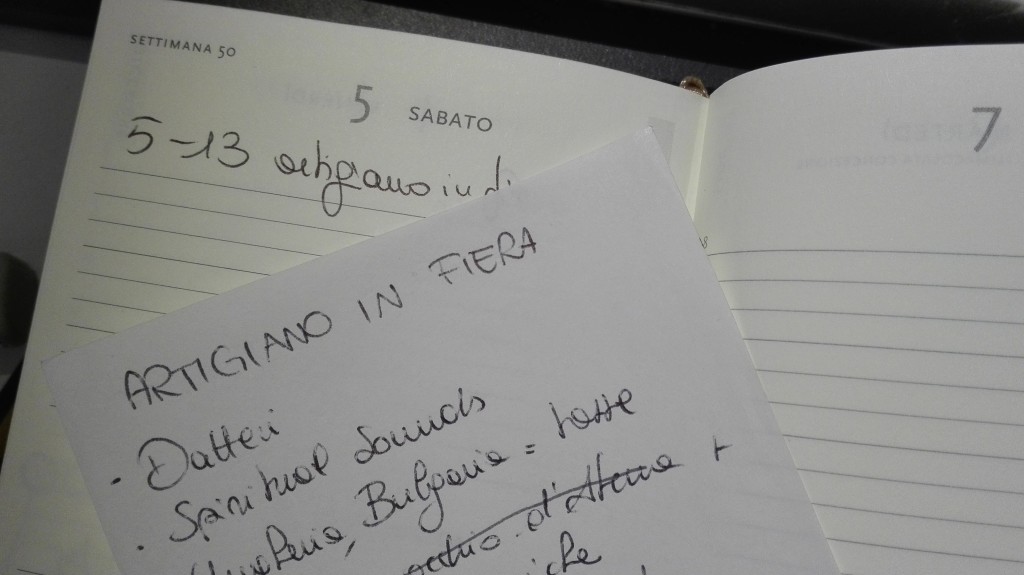 SETTIMANA 50
5 SABATO
5-13 artigiano in
7
ARTIGIANO IN FIERA
· Datteri
· Spiritual Sounds
Bulgaria = tosse
d'Atena +